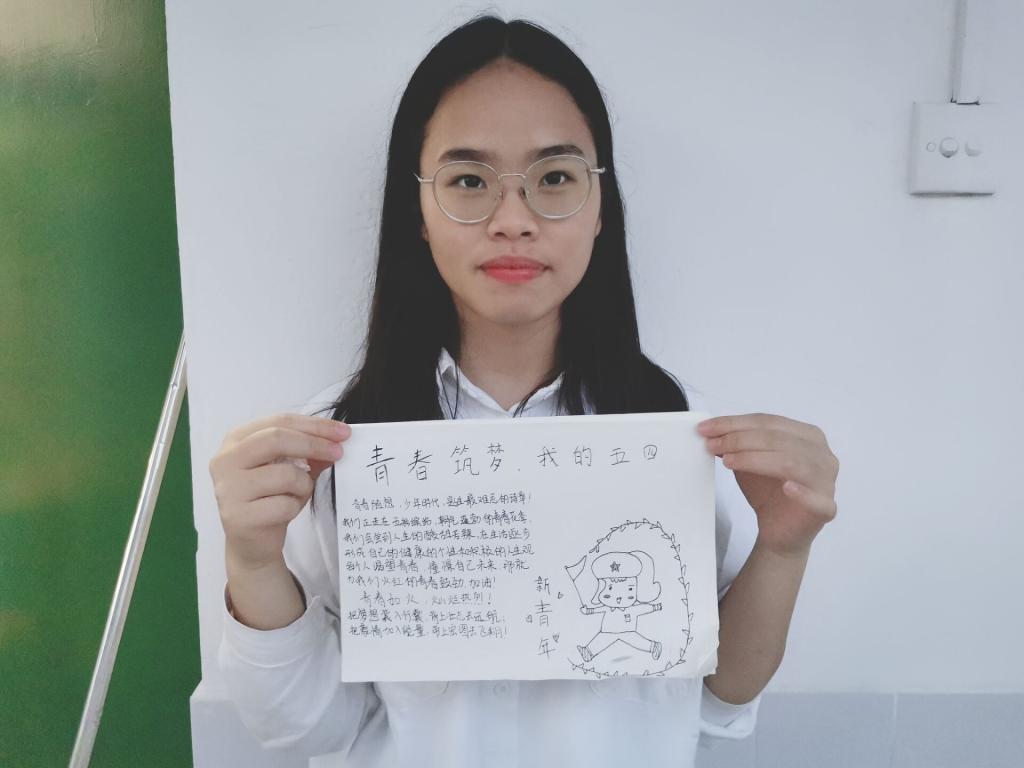 青春筑梦,我的五四
青春随想,少年时代,是生最难忘的诗章!
我们正走在五彩缤纷,朝气蓬勃的青春花季,
我们会尝到人生的酸甜苦辣,在生活逐步
形成自己的健康的个性和积极的人生观
每个人渴望青春,憧憬自己未来,
为我们火红的青春鼓劲,加油!
青春如火,灿烂热烈!
把梦想装入行囊,背上壮志去远航;
把青春加入能量,带上宏图去飞翔!
新青年